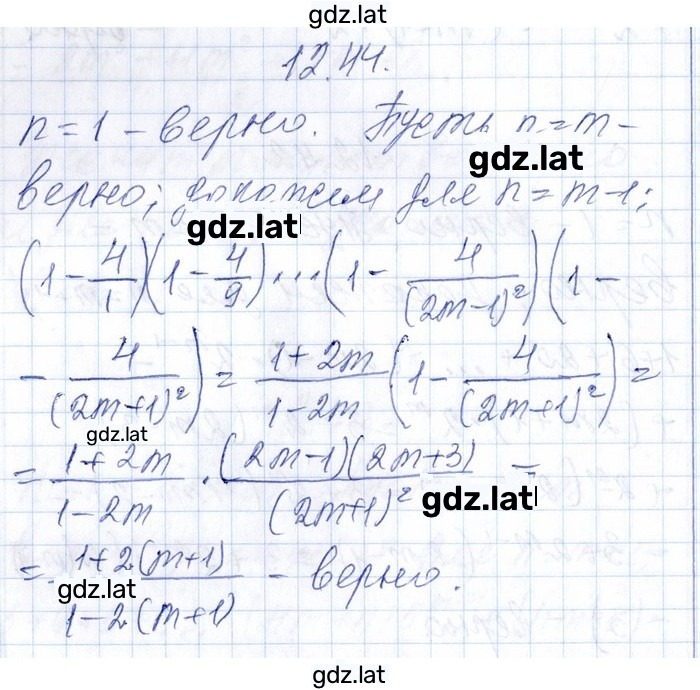 gdz.lat
12.44.
n = 1 - верно. Пусть n = m -
gdz.lat
верно; докажем для n = m - 1;
gdz.lat
(1 - 4/1)(1 - 4/9)...(1 - 4/(2m-1)²)(1 -
- 4/(2m+1)²) = (1+2m)/(1-2m) (1 - 4/(2m+1)²) =
gdz.lat
= (1+2m)/(1-2m) · (2m-1)(2m+3)/(2m+1)² =
gdz.lat
= (1+2(m+1))/(1-2(m+1)) - верно.
gdz.lat
gdz.lat